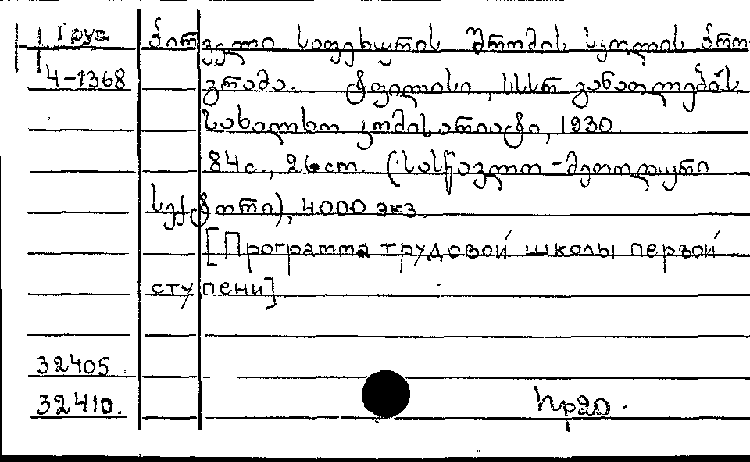 Груз
4-1368
პირველი საფეხურის შრომის სკოლის პრო
გრამა. ტფილისი, სსსრ განათლების
სახალხო კომისარიატი, 1930
84с., 26 cm. (სასწავლო-მეთოდური
სექტორი), 4000 экз.
[Программа трудовой школы первой
ступени]
32405
32410.